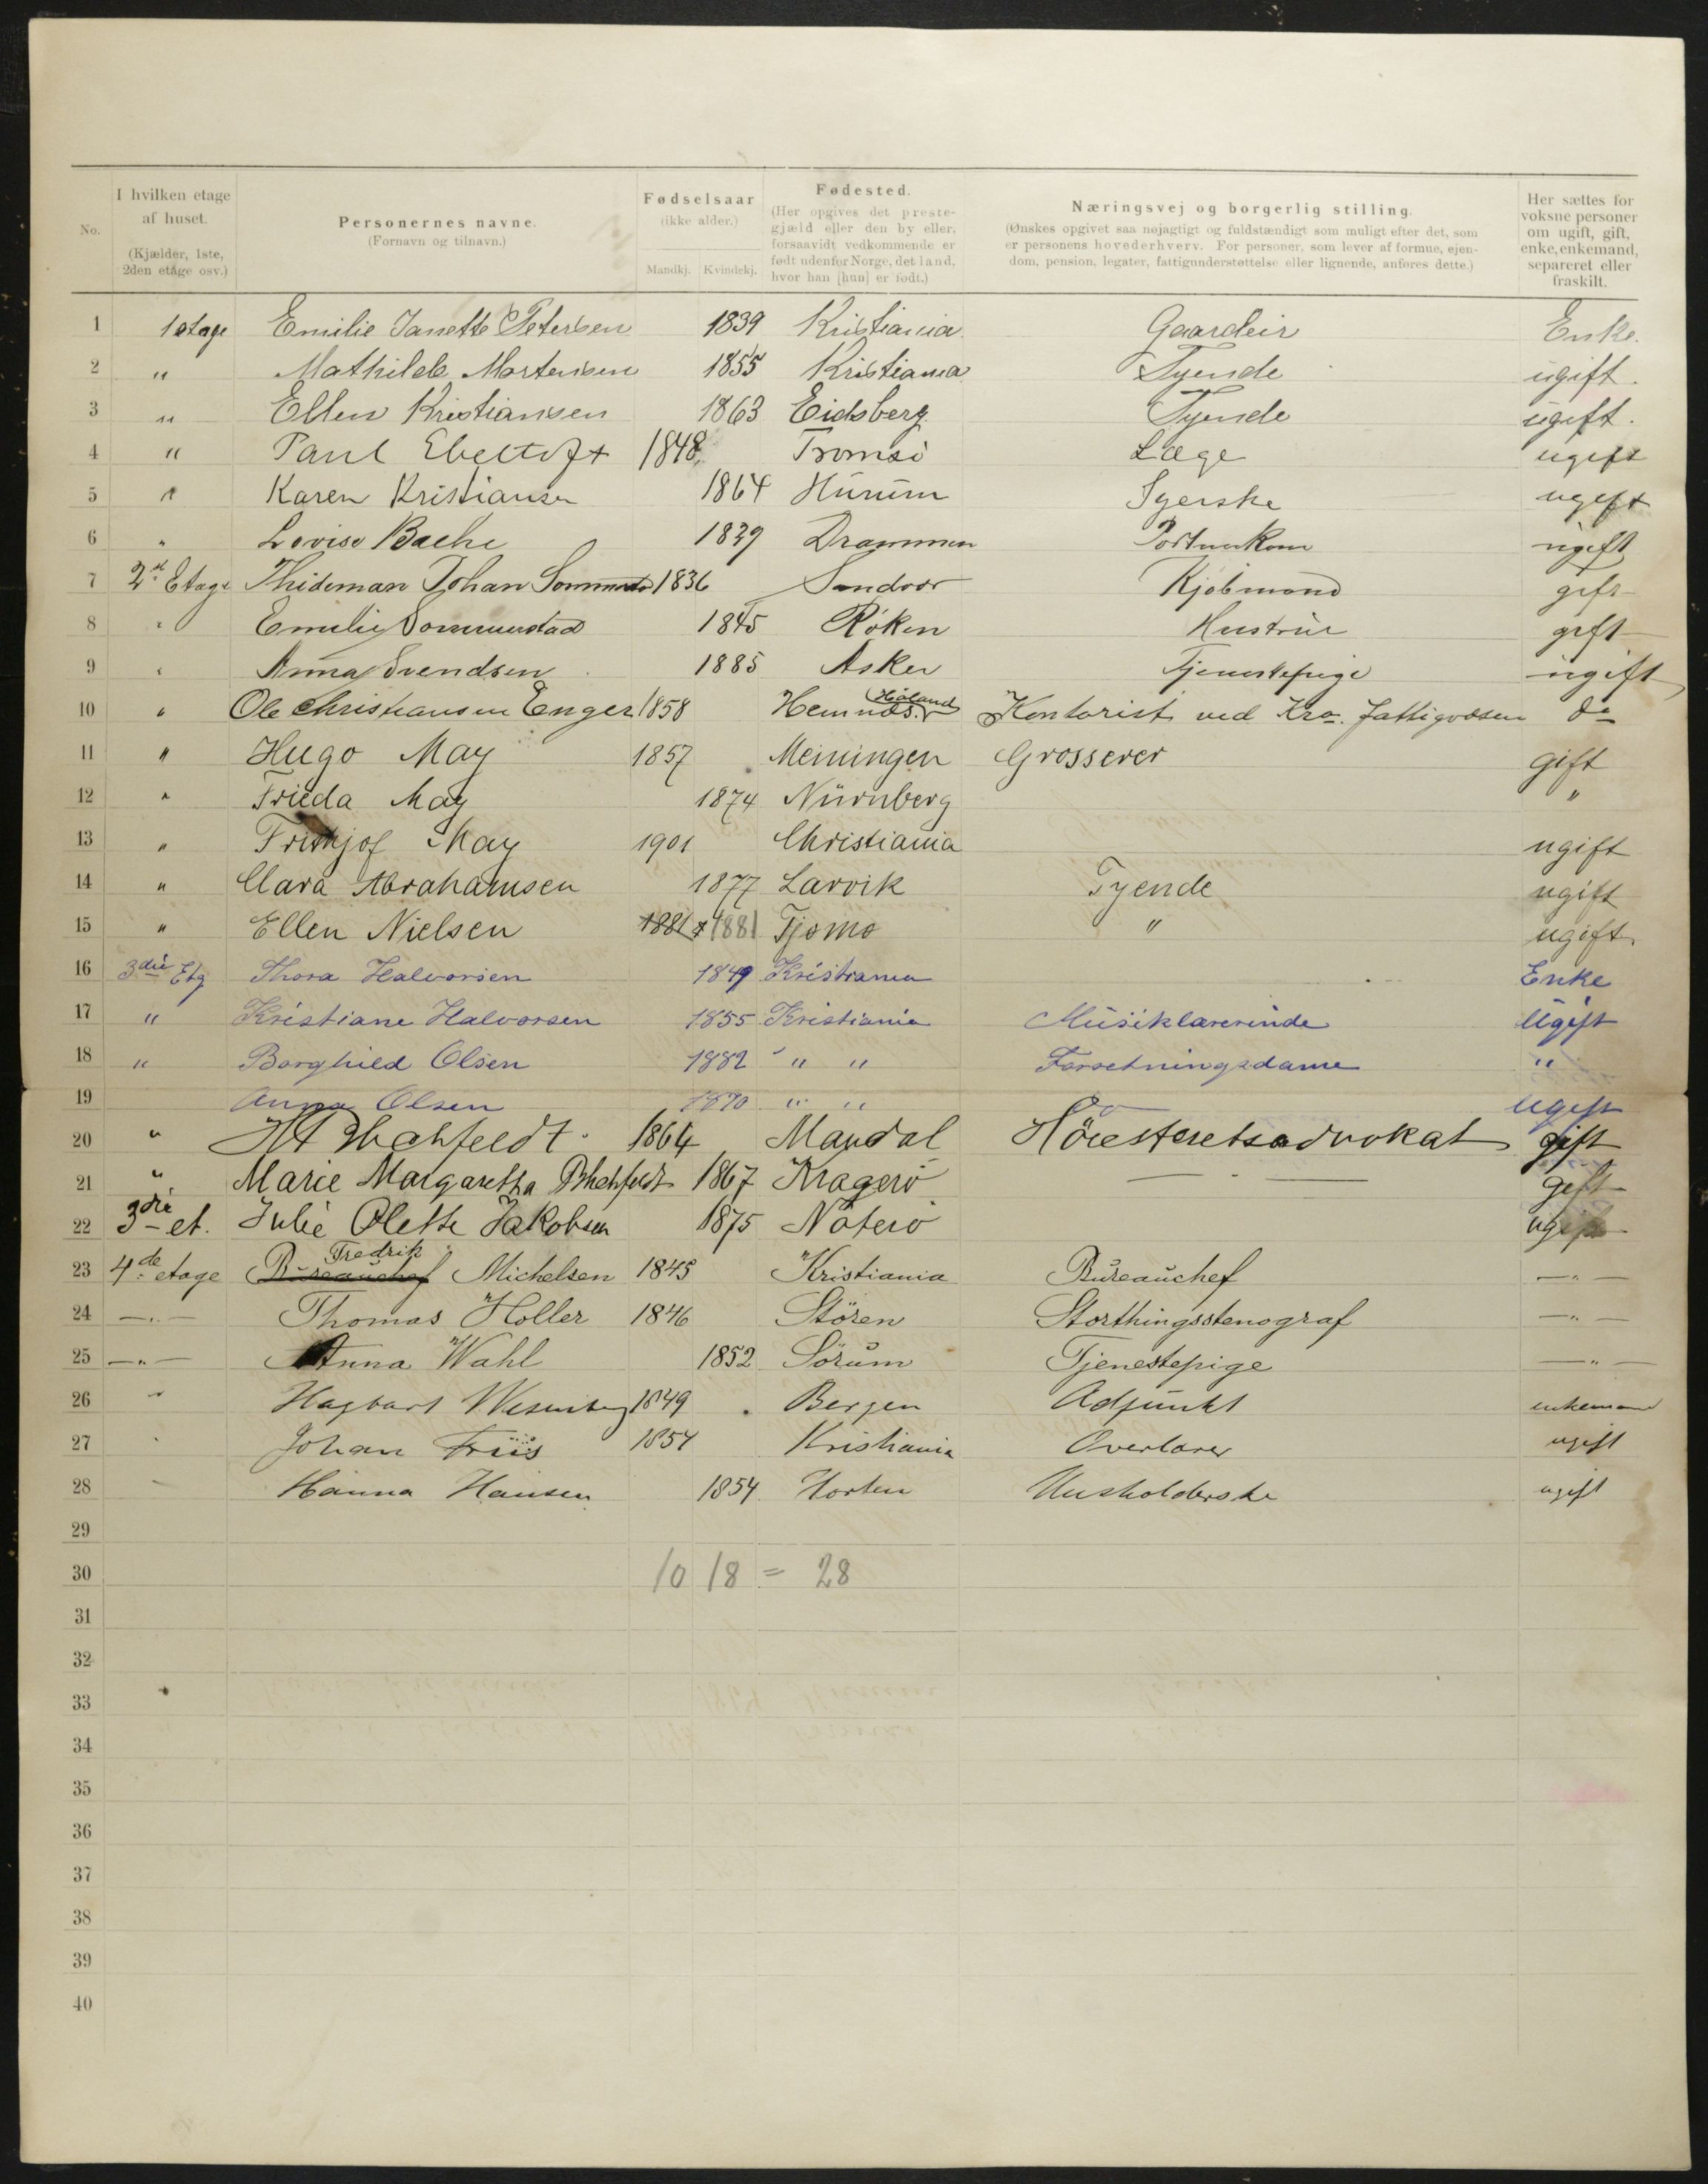 No. I hvilken etage af huset. (Kjælder, 1ste, 2den etage osv.) Personernes navne. (Fornavn og tilnavn.) Fødselsaar (ikke alder.) Mandkj. Kvindekj. Fødested. (Her opgives det prestegjæld eller den by eller, forsaavidt vedkommende er født udenfor Norge, det land, hvor han [hun] er født.) Næringsvej og borgerlig stilling. (Ønskes opgivet saa nøjagtigt og fuldstændigt som muligt efter det, som er personens hovederhverv. For personer, som lever af formue, ejendom, pension, legater, fattigunderstøttelse eller lignende, anføres dette.) Her sættes for voksne personer om ugift, gift, enke, enkemand, separeret eller fraskilt.
1 1 etage Emilie Janette Petersen 1839 Kristiania Gaardeir Enke.
2 " Mathilde Mortensen 1855 Kristiania Tyende ugift.
3 " Ellen Kristiansen 1863 Eidsberg Tyende ugift.
4 " Paul Ebeltoft 1848 Tromsö Læge ugift
5 " Karen Kristiansen 1864 Hurum Syerske ugift
6 " Lovise Bache 1839 Drammen ugift
7 2 Etage Thideman Johan 1836 Sandvær Kjøbmand gift
8 " Emilie Sommerstad 1845 Röken Hustrue gift
9 " Anna Svendsen 1885 Asker Tjenestepige ugift
10 " Ole Christiansen Enger 1858 Hemnæs. Høland Kontorist ved Kra. fattigvæsen do
11 " Hugo May 1857 Meiningen Grosserer gift
12 " Frieda May 1874 Nürnberg "
13 " Frithjof May 1901 Christiania ugift
14 " Clara Abrahamsen 1877 Larvik Tyende ugift
15 " Ellen Nielsen 1881 1881 Tjømø " ugift
16 3die Etg Thora Halvorsen 1849 Kristiania Enke
17 " Kristiane Halvorsen 1855 Kristiania Musiklærerinde Ugift
18 " Borghild Olsen 1882 " " Forretningsdame "
19 Anna Olsen 1870 " " Ugift
20 " 1864 Mandal Höiesteretsadvokat gift
21 " Marie Margaretha 1867 Kragerö — — gift
22 3die et. Julie Olette Jakobsen 1875 Nøterö ugift
23 4de etage Bureauchef Fredrik Michelsen 1845 Kristiania Bureauchef —"—
24 —"— Thomas Holler 1846 Stören Storthingsstenograf —"—
25 —"— Anna Wahl 1852 Sörum Tjenestepige —"—
26 " Hagbart Wesenberg 1849 Bergen Adjunkt enkemand
27 " Johan Friis 1854 Kristiania Overlærer ugift
28 " Hanna Hansen 1854 Horten Husholderske ugift
29
30 10 18 = 28
31
32
33
34
35
36
37
38
39
40